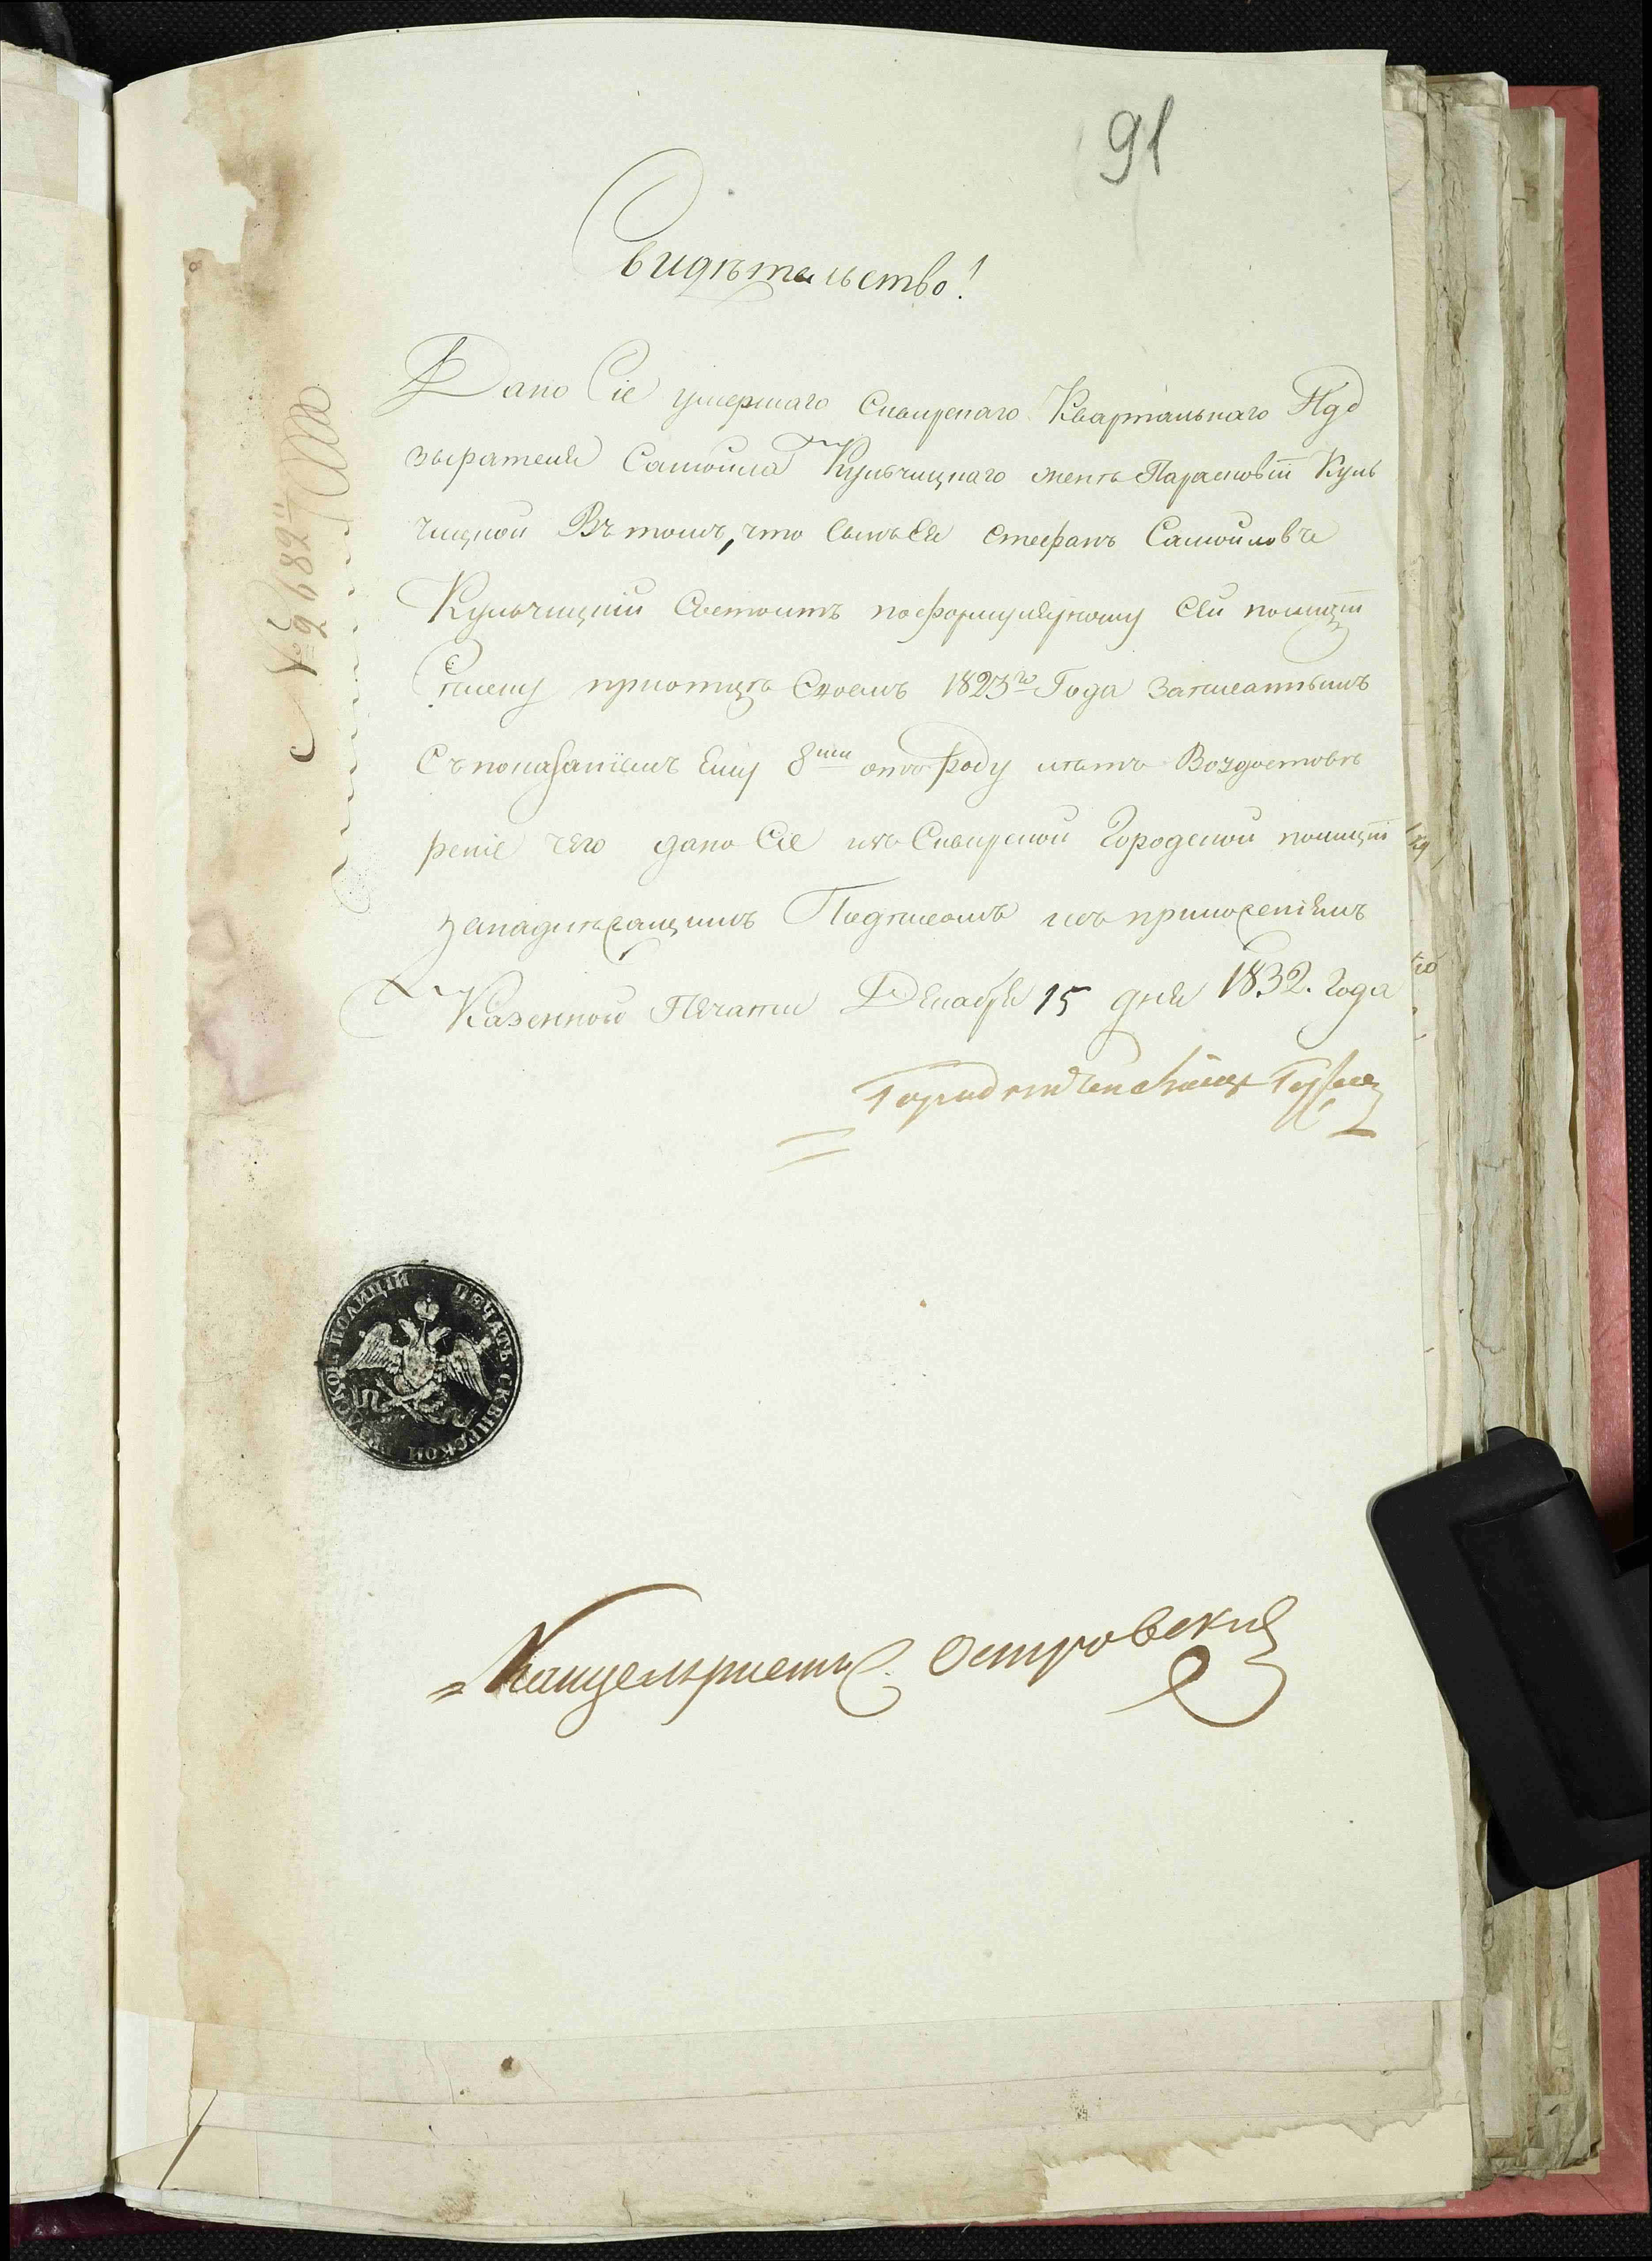 91
Свидѣтельство!
Дано Сіе умершаго Сквирскаго Квартальнаго Над
зырателя Самойла Кульчицкаго женѣ Парасковіи Куль
чицкой Въ томъ, что Сынъ Ея Стефанъ Самойловъ
Кульчицкій Состоитъ по формулярному Сей полиціи
Списку при отцѣ Своемъ 1823го Года записаннымъ
Съ показаніемъ Ему 8ми отъ Роду лѣтъ Во удостовѣ
реніе чего дано Сіе изъ Сквирской Городской полиціи
за надлежащимъ Подписомъ и съ приложеніемъ
Казенной Печати Декабря 15 дня 1832. Года
Городничій
ПЕЧАТЬ СКВИРСКОЙ ГРАДСКОЙ ПОЛИЦІИ
Канцеляристъ Островскій
№ 2682